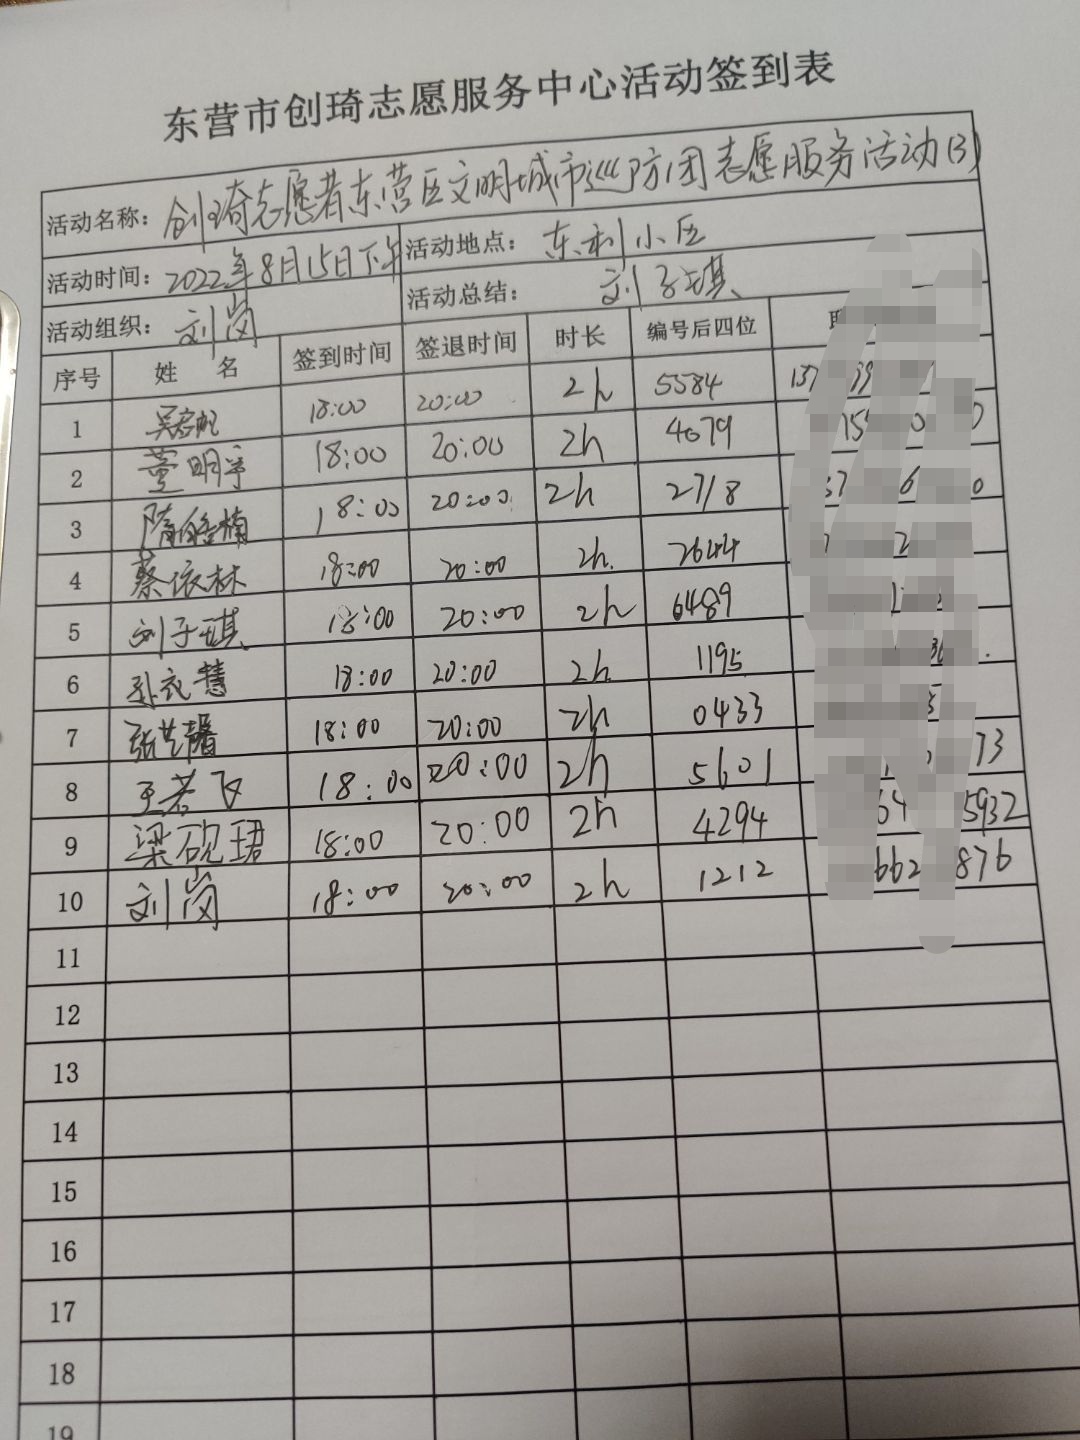 东营市创琦志愿服务中心活动签到表
活动名称：创琦志愿者东营区文明城市巡防团志愿服务活动(3)
活动时间：2022年8月15日下午 活动地点：东利小区
活动组织：刘岗 活动总结：刘子琪
序号 姓 名 签到时间 签退时间 时长 编号后四位
1 18:00 20:00 2h 5584
2 董明宇 18:00 20:00 2h 4079
3 18:00 20:00 2h 2718
4 蔡依林 18:00 20:00 2h. 2644
5 刘子琪 18:00 20:00 2h 6489
6 孙衣慧 18:00 20:00 2h 1195
7 张艺馨 18:00 20:00 2h 0433
8 王若飞 18:00 20:00 2h 5601 73
9 梁砚珺 18:00 20:00 2h 4294 5932
10 刘岗 18:00 20:00 2h 1212 662 876
11
12
13
14
15
16
17
18
19